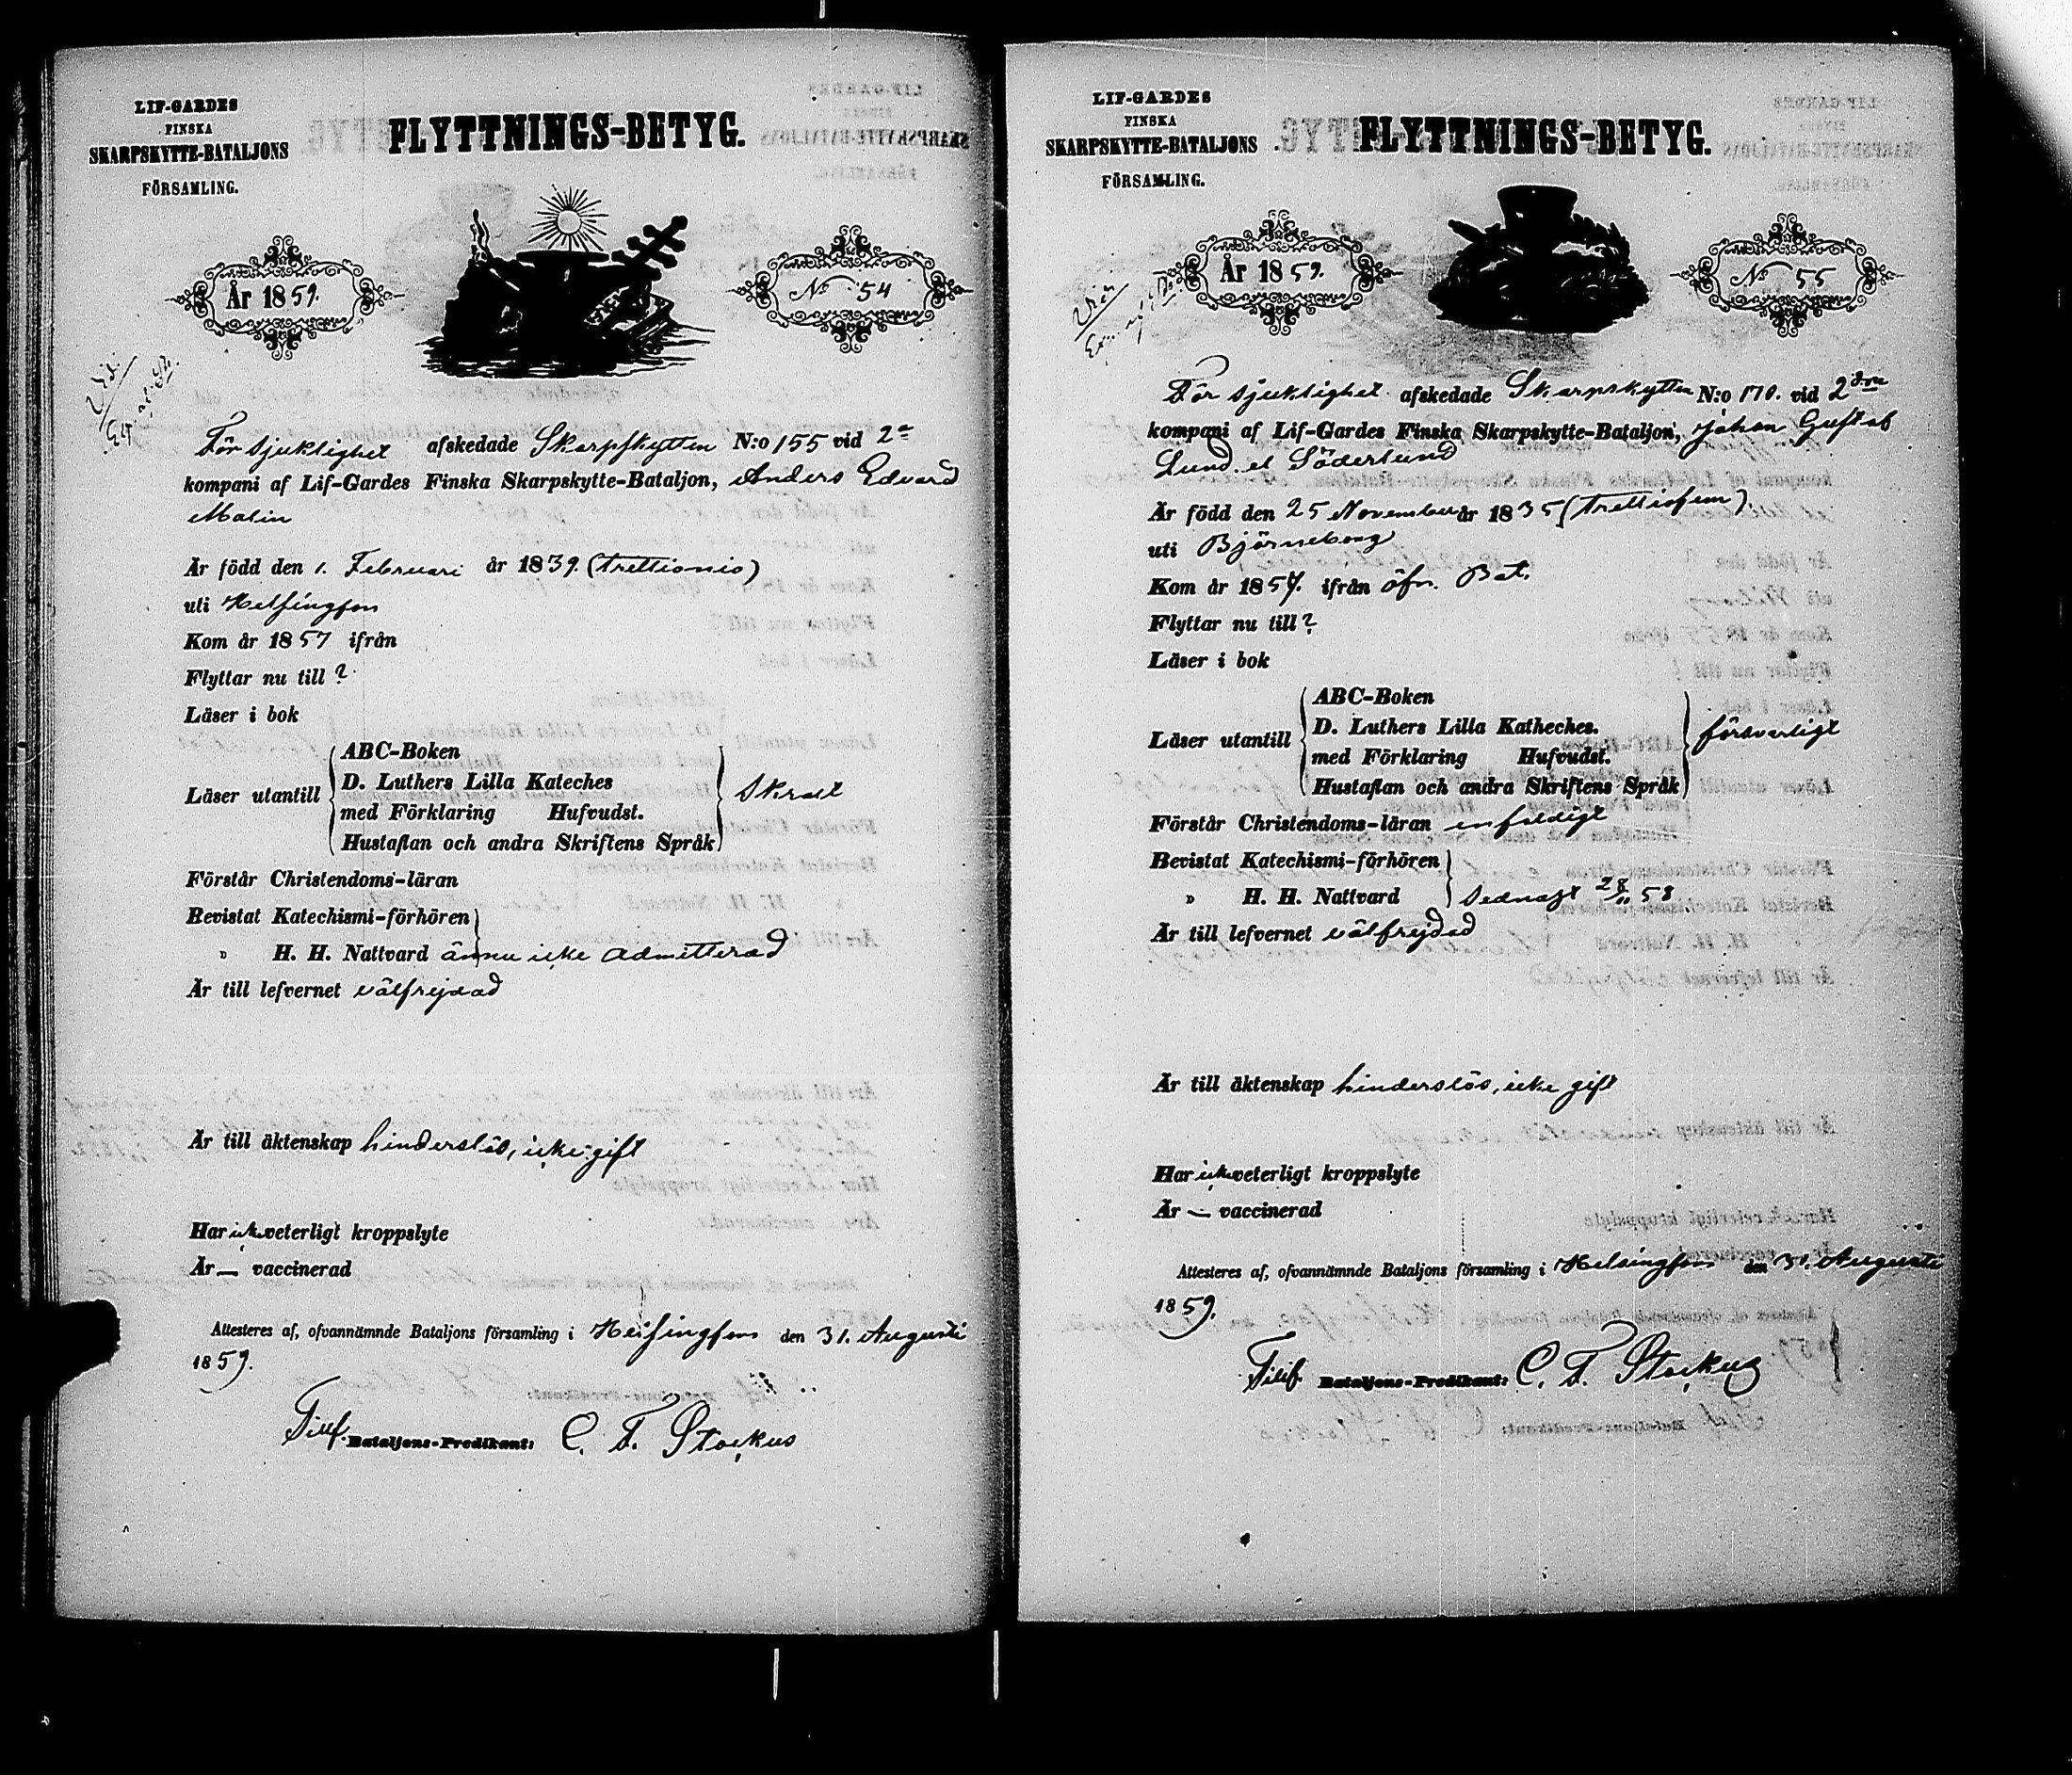 LIF-GARDES
FINSKA
SKARPSKYTTE-BATALJONS
FÖRSAMLING.
FLYTTNINGS-BETYG.
År 1859.
No 54
För sjuklighet afskedade Skarpskytten N:o 155 vid 2a
kompani af Lif-Gardes Finska Skarpskytte-Bataljon, Anders Edvard
Malin
Är född den 1. Februari år 1839. (trettionio)
uti Helsingfors
Kom år 1857 ifrån
Flyttar nu till ?
Läser i bok
Läser utantill
ABC-Boken
D. Luthers Lilla Kateches
med Förklaring Hufvudst.
Hustaflan och andra Skriftens Språk
Skralt
Förstår Christendoms-läran
Bevistat Katechismi-förhören
" H. H. Nattvard ännu icke admitterad
Är till lefvernet välfrejdad
Är till äktenskap hinderslös, icke gift
Har icke veterligt kroppslyte
Är — vaccinerad
Attesteres af, ofvannämnde Bataljons församling i Helsingfors den 31. Augusti
1859.
Tillf. Bataljons-Predikant: C. F. Stockus
LIF-GARDES
FINSKA
SKARPSKYTTE-BATALJONS
FÖRSAMLING.
FLYTTNINGS-BETYG.
År 1859.
No 55
För sjuklighet afskedade Skarpskytten N:o 170. vid 2dra
kompani af Lif-Gardes Finska Skarpskytte-Bataljon, Johan Gustaf
Lund el Söderlund
Är född den 25 November år 1835 (trettiofem)
uti Björneborg
Kom år 1857. ifrån öfn. Bat.
Flyttar nu till ?
Läser i bok
Läser utantill
ABC-Boken
D. Luthers Lilla Katheches.
med Förklaring Hufvudst.
Hustaflan och andra Skriftens Språk
försvarligt
Förstår Christendoms-läran enfaldigt
Bevistat Katechismi-förhören
" H. H. Nattvard
sednast 28/11 58
Är till lefvernet välfrejdad
Är till äktenskap hinderslös, icke gift
Har icke veterligt kroppslyte
Är — vaccinerad
Attesteres af, ofvannämnde Bataljons församling i Helsingfors den 31. Augusti
1859.
Tillf. Bataljons-Predikant: C. F. Stockus